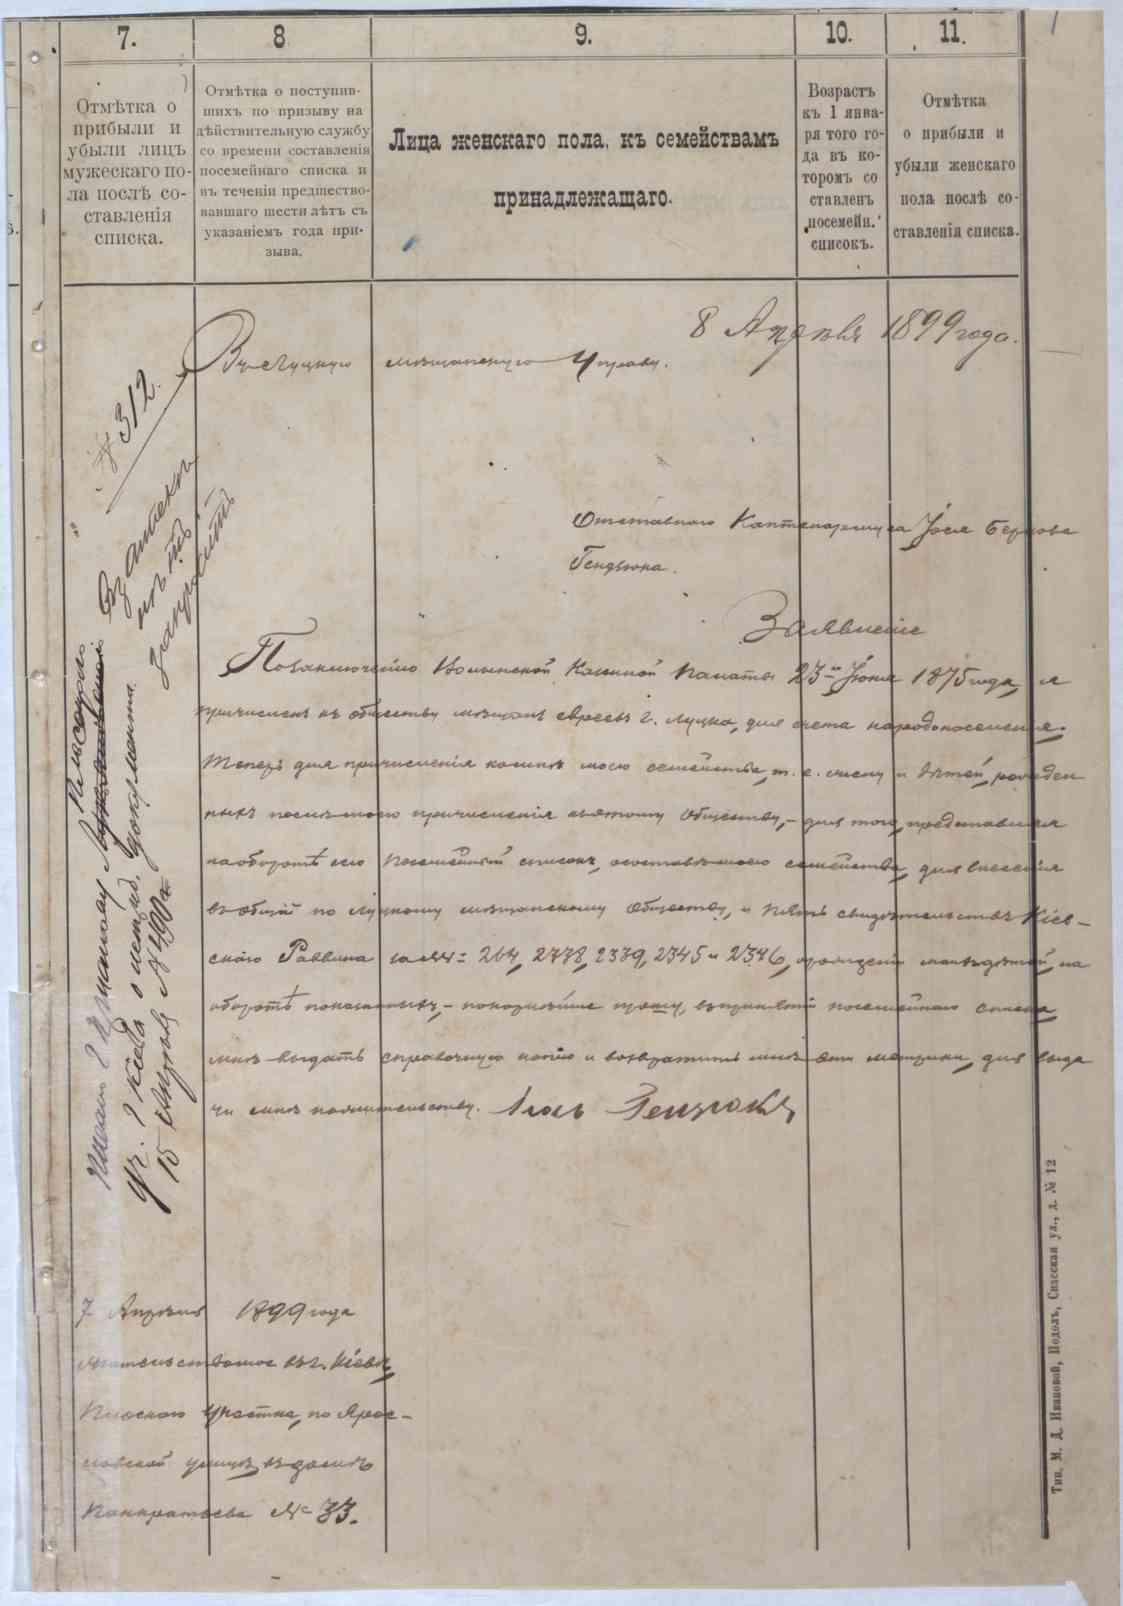 7.
8
9.
10.
11.
Отмѣтка о
прибыли и
убыли лицъ
мужескаго по-
ла послѣ со-
ставленія
списка.
Отмѣтка о поступив-
шихъ по призыву на
дѣйствительную службу
со времени составленія
посемейнаго списка и
въ теченіи предшество-
вавшаго шести лѣтъ съ
указаніемъ года при-
зыва.
Лица женскаго пола, къ семействамъ
принадлежащаго.
Возрастъ
къ 1 янва-
ря того го-
да въ ко-
торомъ со
ставленъ
посемейн.
списокъ.
Отмѣтка
о прибыли и
убыли женскаго
пола послѣ со-
ставленія списка.
8 Апрѣля 1899 года.
Въ Луцкую мѣщанскую Управу.
№ 312.
Отставного Каптенармуса Іося Беркова
Гендзюка.
Заявленіе
По заключенію Волынской Казенной Палаты 23 Іюня 1875 года, я
причисленъ къ обществу мѣщанъ евреевъ г. Луцка, для счета народонаселенія.
Теперь для причисленія къ мнѣ мою семейства, т. е. жену и дѣтей, рожден
ныхъ послѣ моего причисленія къ этому Обществу, – для того, представляя
на оборотѣ сего Посемейный списокъ, о составѣ моего семейства, для внесенія
въ общій по Луцкому мѣщанскому Обществу, и пять свидѣтельствъ Кіев-
скаго Раввина за №№ 264, 2338, 2339, 2345 и 2346, о рожденіи моихъ дѣтей, на
оборотѣ показанныхъ, – покорнѣйше прошу, по принятіи посемейнаго списка,
мнѣ выдать справочную копію и возвратить мнѣ эти метрики, для выда
чи мнѣ по жительству. Іось Гендзюкъ
15 Апрѣля № 490
7 Апрѣля 1899 года
Жительствомъ въ г. Кіевѣ,
Плоскаго участка, по Ярос-
лавской улицѣ, въ домѣ
Панкратьева № 33.
Тип. М. Д. Ивановой, Подолъ, Спасская ул., д. № 12